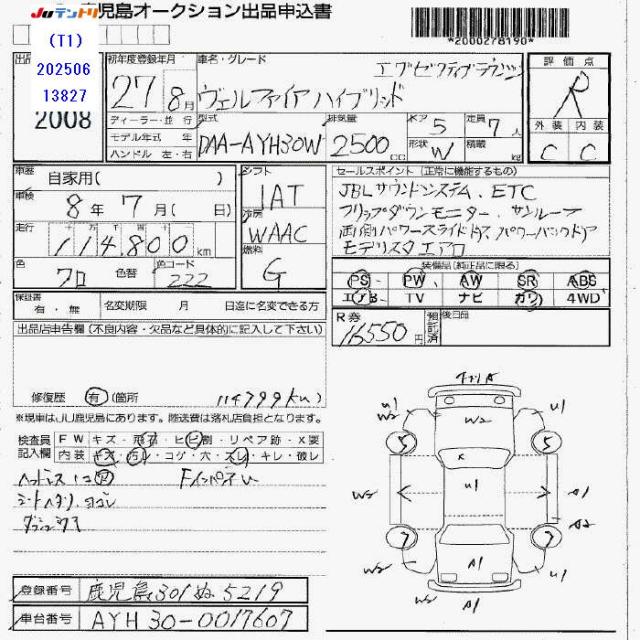 JUテントリ 鹿児島オークション出品申込書
*2000278190*
(T1)
202506
13827
2008
初年度登録年月
27 8月
車名・グレード
エグゼクティブラウンジ
ヴェルファイアハイブリッド
評価点
R
外装 内装
C C
ディーラー・並行
モデル年式 年
ハンドル 左・右
型式
DAA-AYH30W
排気量
2500 cc
ドア 5
定員 7人
形状 W
積載 kg
車歴
自家用( )
車検
8年 7月( 日)
走行
114,800 km
色
クロ
色替
色コード
222
シフト
IAT
冷房
WAAC
燃料
G
セールスポイント (正常に機能するもの)
JBLサウンドシステム、ETC
フリップダウンモニター、サンルーフ
両側パワースライドドア、パワーバックドア
モデリスタエアロ
装備品[純正品に限る]
PS PW AW SR ABS
エアB TV ナビ カワ 4WD
R券
16550円
預託済
後日品
保証書
有・無
名変期限 月 日迄に名変できる方
出品店申告欄 (不良内容・欠品など具体的に記入して下さい)
修復歴 有 (箇所 114799km)
※現車はJU鹿児島にあります。陸送費は落札店負担となります。
検査員
記入欄
FW キズ・飛石・ヒビ割・リペア跡・X要
内装 キズ・汚レ・コゲ・穴・スレ・キレ・破レ
Fインパネキレ
シートヘタリ、ヨゴレ
ダッシュキズ
登録番号
鹿児島301ぬ5219
車台番号
AYH30-0017607
U1
W2
W2
U1
5
5
X
U1
W2
A1
A2
7
7
A1
W2
U1
A1